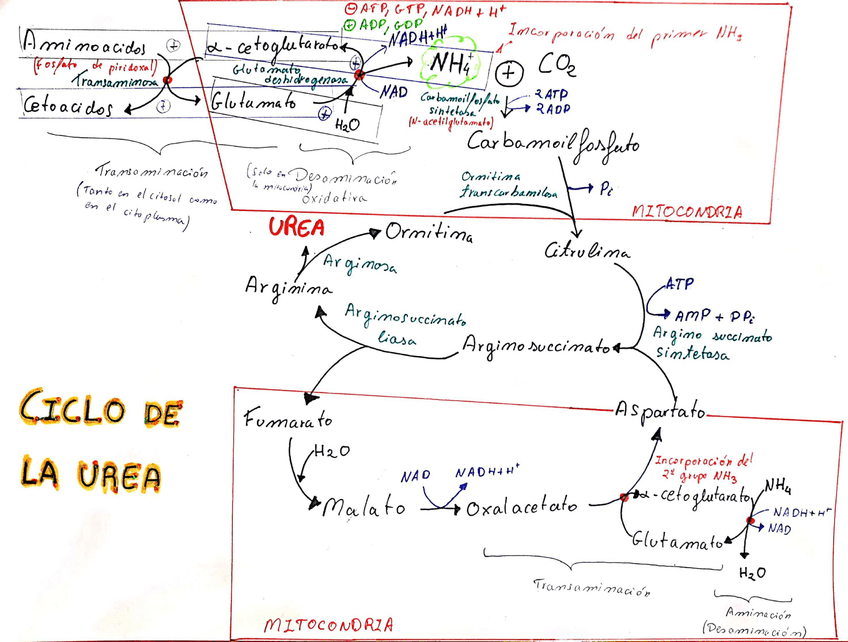 ⊖ ATP, GTP, NADH + H⁺
⊕ ADP, GDP
Incorporación del primer NH₃
Aminoacidos
+
α-cetoglutarato
NADH+H⁺
NH₄⁺
+
CO₂
(fosfato de piridoxal)
Transaminasa
Glutamato
deshidrogenasa
+
NAD
Cetoacidos
+
Glutamato
+
H₂O
Carbamoilfosfato
sintetasa
(N-acetilglutamato)
2ATP
2ADP
Carbamoilfosfato
Transaminación
(Tanto en el citosol como
en el citoplasma)
(Solo en
la mitocondria)
Desaminación
oxidativa
Ornitina
transcarbamilasa
Pi
MITOCONDRIA
UREA
Ornitina
Citrulina
Arginasa
Arginina
ATP
AMP + PPi
Arginosuccinato
liasa
Arginosuccinato
Argino succinato
sintetasa
CICLO DE
LA UREA
Fumarato
Aspartato
H₂O
Incorporación del
2º grupo NH₃
NAD
NADH+H⁺
α-cetoglutarato
NH₄
Malato
Oxalacetato
NADH+H⁺
NAD
Glutamato
H₂O
Transaminación
Aminación
(Desaminación)
MITOCONDRIA